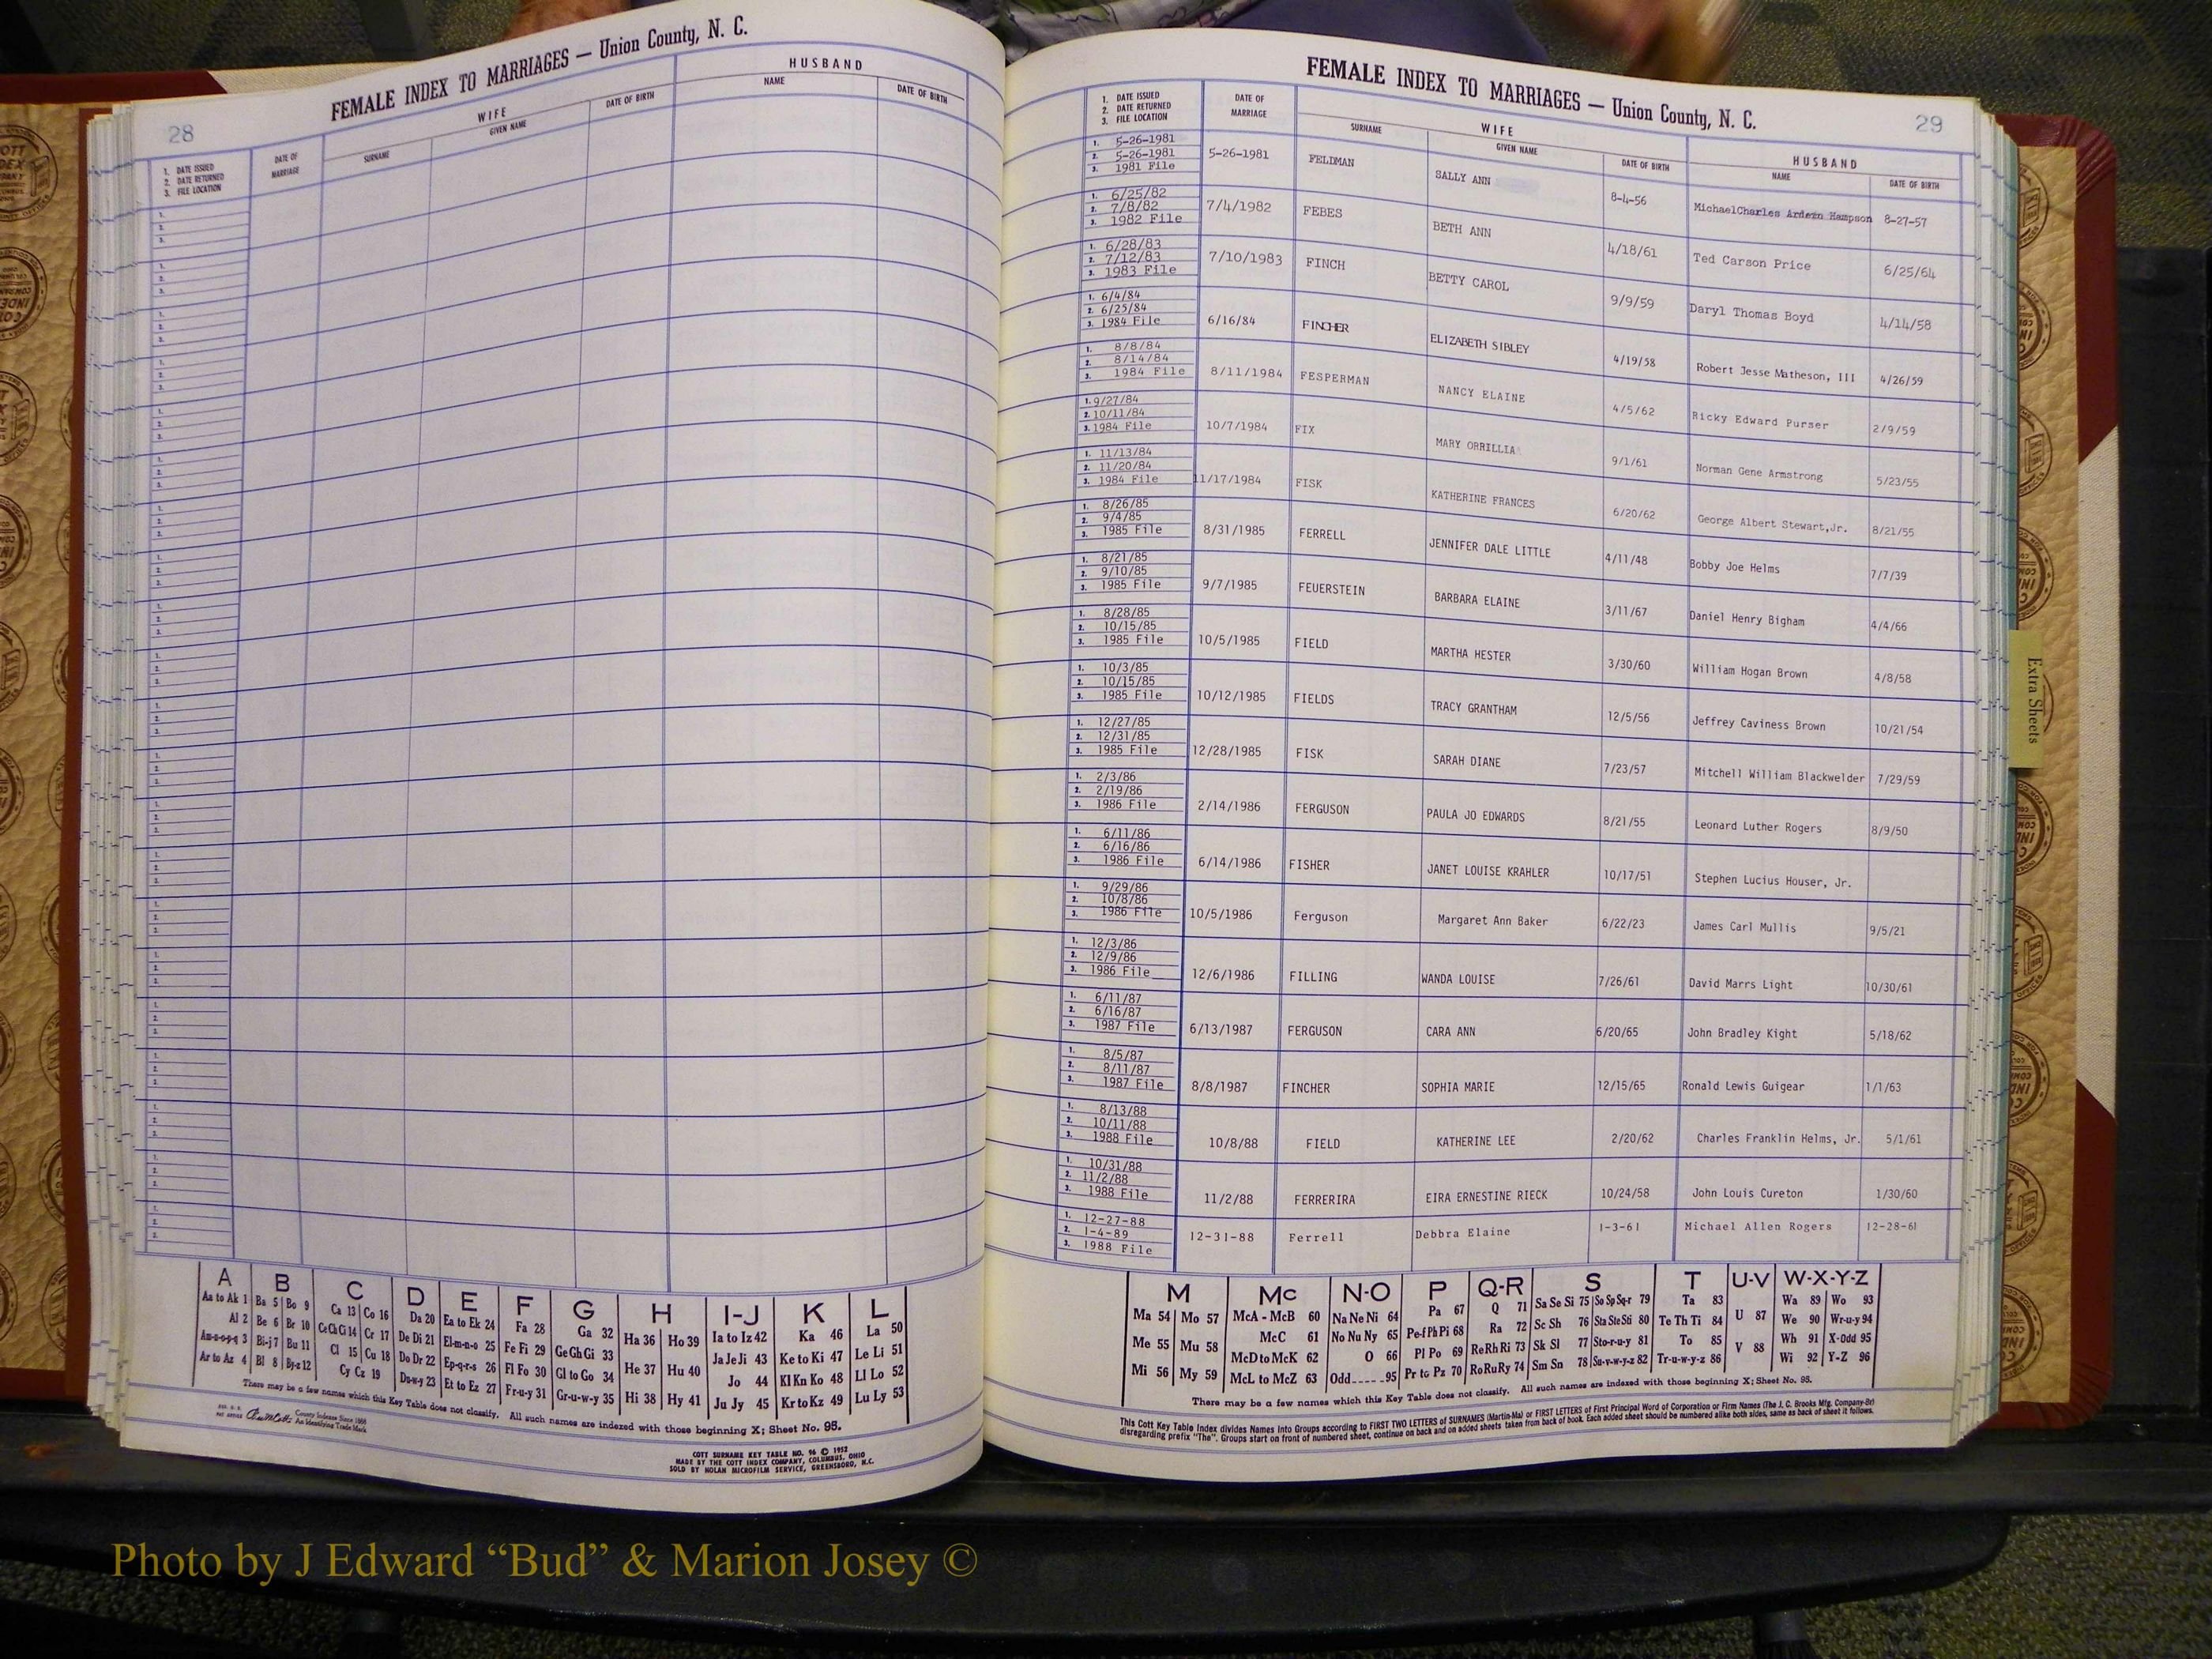 28
FEMALE INDEX TO MARRIAGES — Union County, N. C.
1. DATE ISSUED
2. DATE RETURNED
3. FILE LOCATION
DATE OF MARRIAGE
WIFE
SURNAME GIVEN NAME DATE OF BIRTH
HUSBAND
NAME DATE OF BIRTH
A B C D E F G H I-J K L
Aa to Ak 1 Ba 5 Bo 9 Ca 13 Co 16 Da 20 Ea to Ek 24 Fa 28 Ga 32 Ha 36 Ho 39 Ia to Iz 42 Ka 46 La 50
Al 2 Be 6 Br 10 Ce Ch Ci 14 Cr 17 De Di 21 El-m-n-o 25 Fe Fi 29 Ge Gh Gi 33 Ja Je Ji 43 Ke to Ki 47 Le Li 51
Am-n-o-p-q 3 Bi-j 7 Bu 11 Cl 15 Cu 18 Do Dr 22 Ep-q-r-s 26 Fl Fo 30 Gl to Go 34 He 37 Hu 40 Jo 44 Kl Kn Ko 48 Ll Lo 52
Ar to Az 4 Bl 8 By-z 12 Cy Cz 19 Du-w-y 23 Et to Ez 27 Fr-u-y 31 Gr-u-w-y 35 Hi 38 Hy 41 Ju Jy 45 Kr to Kz 49 Lu Ly 53
There may be a few names which this Key Table does not classify. All such names are indexed with those beginning X; Sheet No. 95.
County Indexes Since 1888
An Identifying Trade Mark
COTT SURNAME KEY TABLE NO. 96 © 1952
MADE BY THE COTT INDEX COMPANY, COLUMBUS, OHIO
SOLD BY NOLAN MICROFILM SERVICE, GREENSBORO, N.C.
FEMALE INDEX TO MARRIAGES — Union County, N. C.
29
1. DATE ISSUED
2. DATE RETURNED
3. FILE LOCATION
DATE OF MARRIAGE
WIFE
SURNAME GIVEN NAME DATE OF BIRTH
HUSBAND
NAME DATE OF BIRTH
1. 5-26-1981
2. 5-26-1981
3. 1981 File
5-26-1981 FELDMAN SALLY ANN 8-4-56 MichaelCharles Ardern Hampson 8-27-57
1. 6/25/82
2. 7/8/82
3. 1982 File
7/4/1982 FEBES BETH ANN 4/18/61 Ted Carson Price 6/25/64
1. 6/28/83
2. 7/12/83
3. 1983 File
7/10/1983 FINCH BETTY CAROL 9/9/59 Daryl Thomas Boyd 4/14/58
1. 6/4/84
2. 6/25/84
3. 1984 File
6/16/84 FINCHER ELIZABETH SIBLEY 4/19/58 Robert Jesse Matheson, III 4/26/59
1. 8/8/84
2. 8/14/84
3. 1984 File
8/11/1984 FESPERMAN NANCY ELAINE 4/5/62 Ricky Edward Purser 2/9/59
1. 9/27/84
2. 10/11/84
3. 1984 File
10/7/1984 FIX MARY ORRILLIA 9/1/61 Norman Gene Armstrong 5/23/55
1. 11/13/84
2. 11/20/84
3. 1984 File
11/17/1984 FISK KATHERINE FRANCES 6/20/62 George Albert Stewart,Jr. 8/21/55
1. 8/26/85
2. 9/4/85
3. 1985 File
8/31/1985 FERRELL JENNIFER DALE LITTLE 4/11/48 Bobby Joe Helms 7/7/39
1. 8/21/85
2. 9/10/85
3. 1985 File
9/7/1985 FEUERSTEIN BARBARA ELAINE 3/11/67 Daniel Henry Bigham 4/4/66
1. 8/28/85
2. 10/15/85
3. 1985 File
10/5/1985 FIELD MARTHA HESTER 3/30/60 William Hogan Brown 4/8/58
1. 10/3/85
2. 10/15/85
3. 1985 File
10/12/1985 FIELDS TRACY GRANTHAM 12/5/56 Jeffrey Caviness Brown 10/21/54
1. 12/27/85
2. 12/31/85
3. 1985 File
12/28/1985 FISK SARAH DIANE 7/23/57 Mitchell William Blackwelder 7/29/59
1. 2/3/86
2. 2/19/86
3. 1986 File
2/14/1986 FERGUSON PAULA JO EDWARDS 8/21/55 Leonard Luther Rogers 8/9/50
1. 6/11/86
2. 6/16/86
3. 1986 File
6/14/1986 FISHER JANET LOUISE KRAHLER 10/17/51 Stephen Lucius Houser, Jr.
1. 9/29/86
2. 10/8/86
3. 1986 File
10/5/1986 Ferguson Margaret Ann Baker 6/22/23 James Carl Mullis 9/5/21
1. 12/3/86
2. 12/9/86
3. 1986 File
12/6/1986 FILLING WANDA LOUISE 7/26/61 David Marrs Light 10/30/61
1. 6/11/87
2. 6/16/87
3. 1987 File
6/13/1987 FERGUSON CARA ANN 6/20/65 John Bradley Kight 5/18/62
1. 8/5/87
2. 8/11/87
3. 1987 File
8/8/1987 FINCHER SOPHIA MARIE 12/15/65 Ronald Lewis Guigear 1/1/63
1. 8/13/88
2. 10/11/88
3. 1988 File
10/8/88 FIELD KATHERINE LEE 2/20/62 Charles Franklin Helms, Jr. 5/1/61
1. 10/31/88
2. 11/2/88
3. 1988 File
11/2/88 FERRERIRA EIRA ERNESTINE RIECK 10/24/58 John Louis Cureton 1/30/60
1. 12-27-88
2. 1-4-89
3. 1988 File
12-31-88 Ferrell Debbra Elaine 1-3-61 Michael Allen Rogers 12-28-61
M Mc N-O P Q-R S T U-V W-X-Y-Z
Ma 54 Mo 57 McA - McB 60 Na Ne Ni 64 Pa 67 Q 71 Sa Se Si 75 So Sp Sq-r 79 Ta 83 U 87 Wa 89 Wo 93
Me 55 Mu 58 McC 61 No Nu Ny 65 Pe-f Ph Pi 68 Ra 72 Sc Sh 76 Sta Ste Sti 80 Te Th Ti 84 We 90 Wr-u-y 94
McD to McK 62 O 66 Pl Po 69 Re Rh Ri 73 Sk Sl 77 Sto-r-u-y 81 To 85 V 88 Wh 91 X-Odd 95
Mi 56 My 59 McL to McZ 63 Odd 95 Pr to Pz 70 Ro Ru Ry 74 Sm Sn 78 Su-v-w-y-z 82 Tr-u-w-y-z 86 Wi 92 Y-Z 96
There may be a few names which this Key Table does not classify. All such names are indexed with those beginning X; Sheet No. 95.
This Cott Key Table Index divides Names into Groups according to FIRST TWO LETTERS of SURNAMES (Martin-Ma) or FIRST LETTERS of First Principal Word of Corporation or Firm Names (The J. C. Brooks Mfg. Company-Br)
disregarding prefix "The". Groups start on front of numbered sheet, continue on back and on added sheets taken from back of book. Each added sheet should be numbered alike both sides, same as back of sheet it follows.
Extra Sheets
Photo by J Edward “Bud” & Marion Josey ©